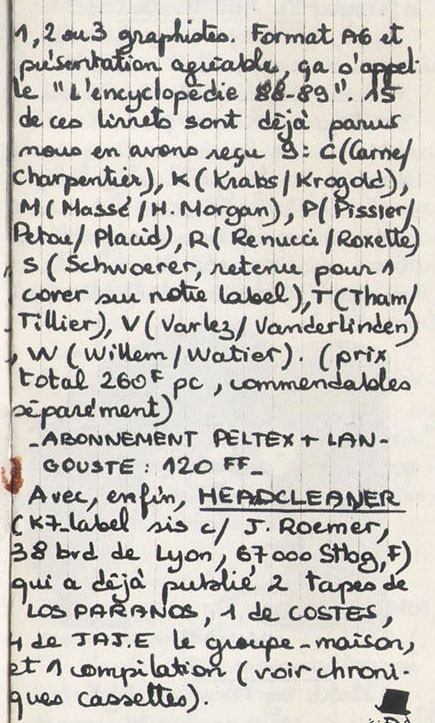 1, 2 ou 3 graphistes. Format A6 et
présentation agréable, ça s'appel-
le "L'encyclopédie 88-89". 15
de ces livrets sont déjà parus
nous en avons reçu 9 : C (Carne/
Charpentier), K (Krabs/Krogold),
M (Massé/H. Morgan), P (Pissier/
Petou/Placid), R (Renucci/Roxette)
, S (Schwoerer, retenu pour 1
cover sur notre label), T (Tham/
Tillier), V (Varlez/Vanderlinden)
, W (Willem/Watier). (prix
total 260F pc, commendables
séparément)
- ABONNEMENT PELTEX + LAN-
GOUSTE : 120 FF -
Avec, enfin, HEADCLEANER
(K7-label sis c/ J. Roemer,
38 bvd de Lyon, 67000 Stbg, F)
qui a déjà publié 2 tapes de
LOS PARANOS, 1 de COSTES,
4 de TAJ.E le groupe-maison,
et 1 compilation (voir chroni-
ques cassettes).